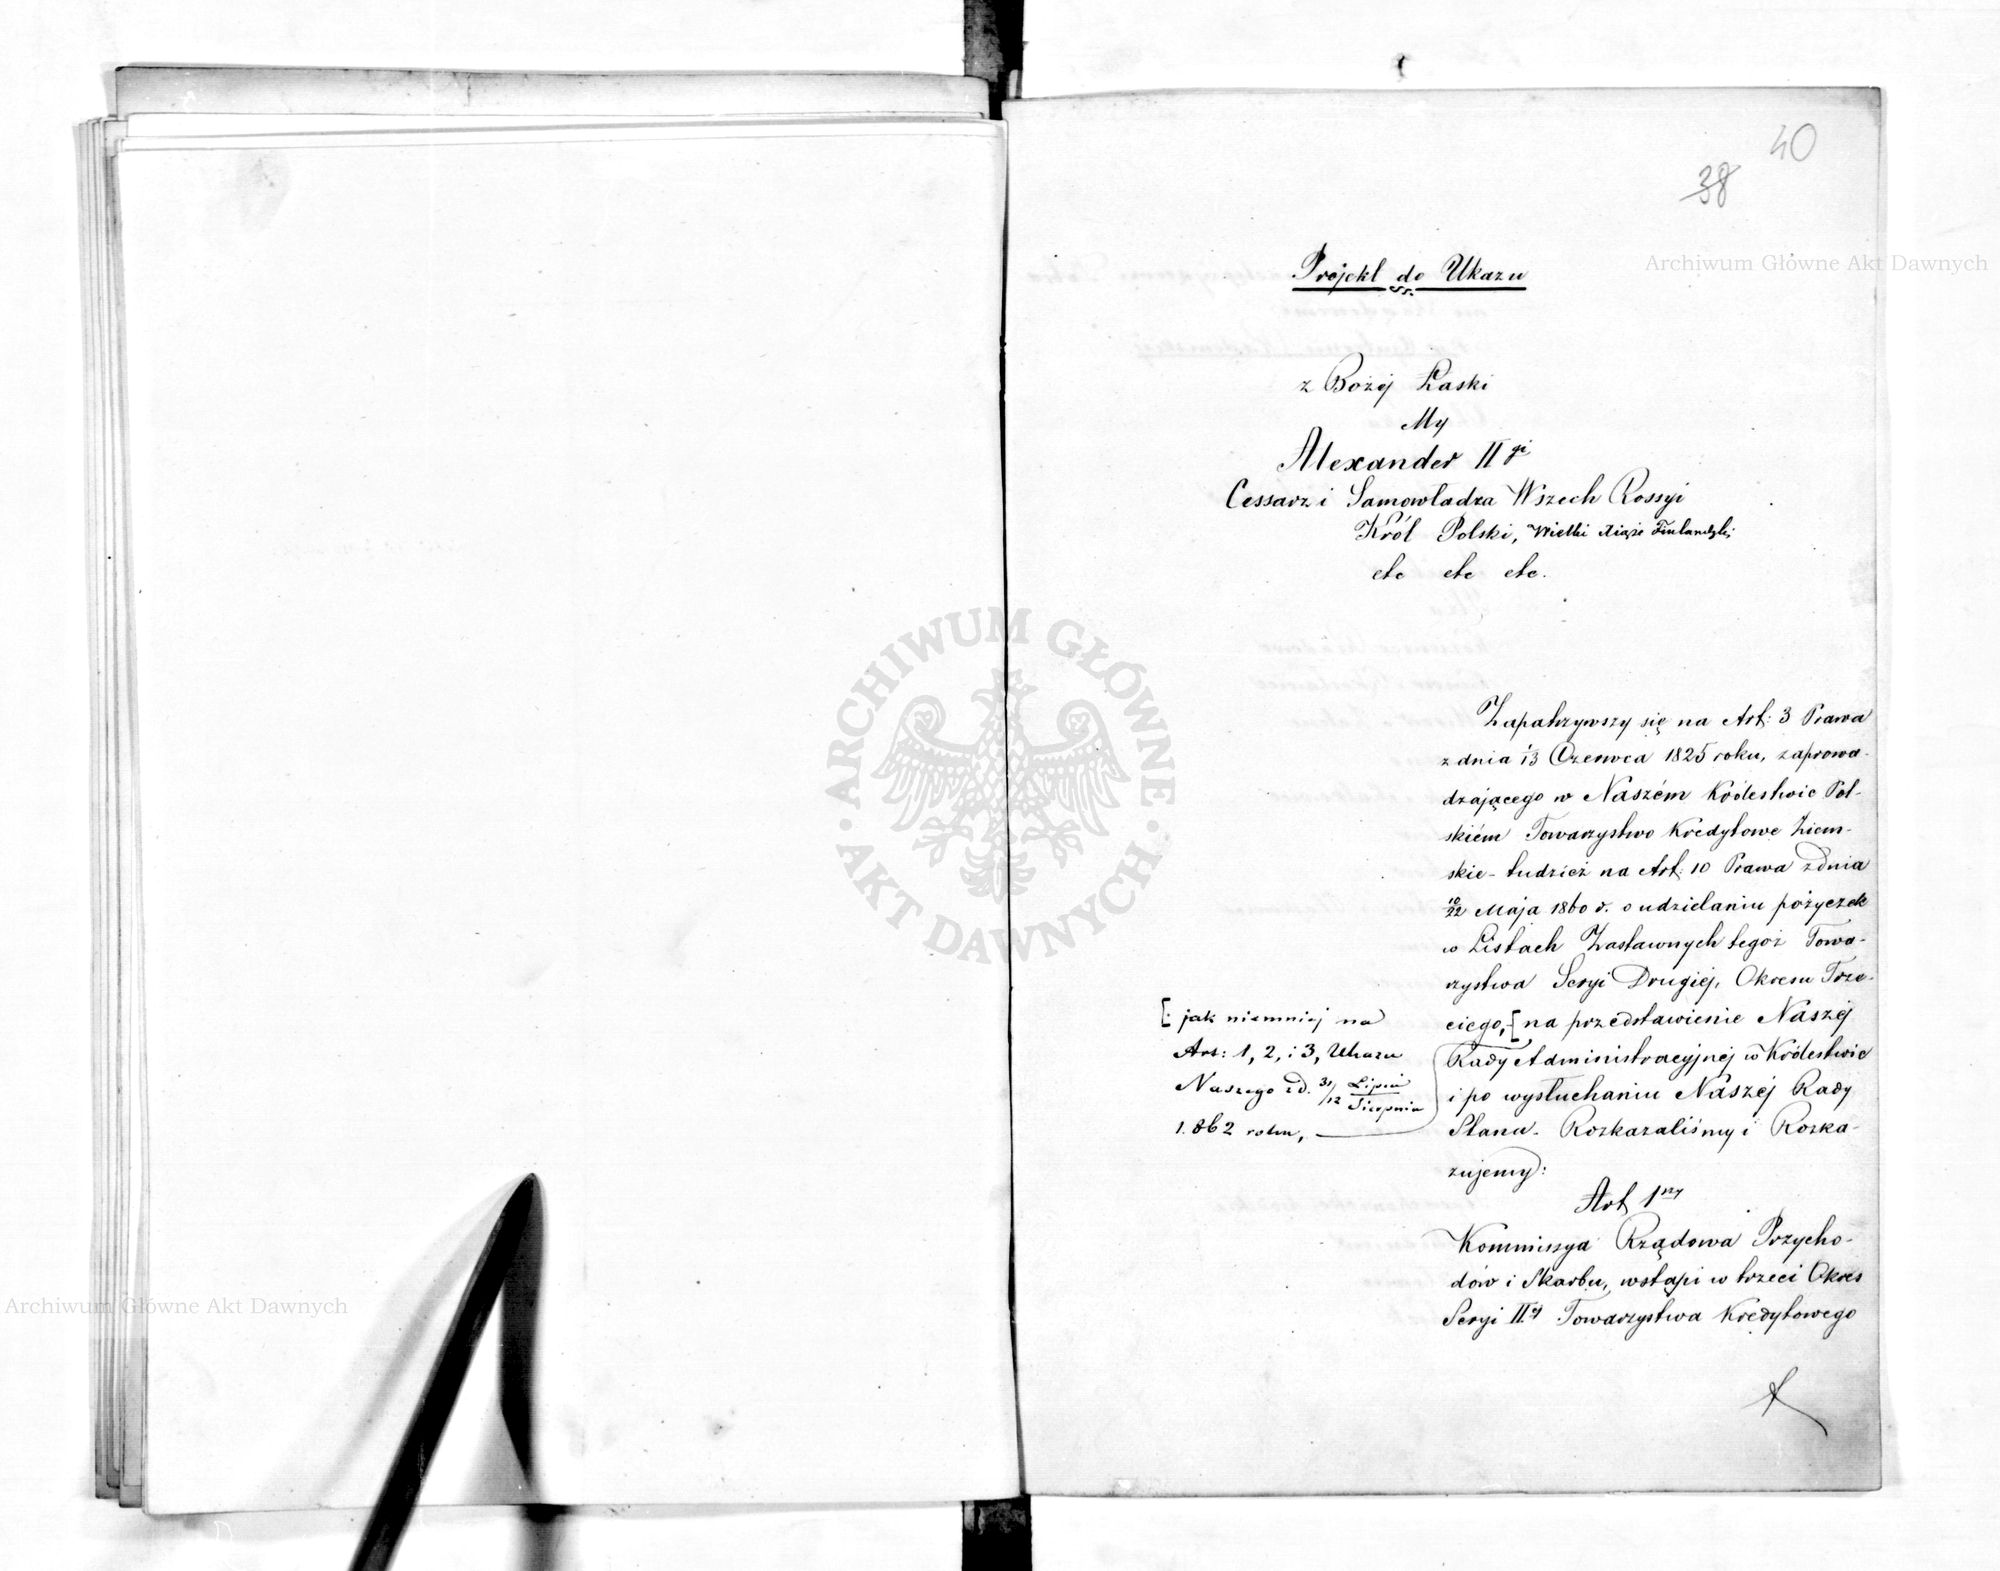 40
38
Projekt do Ukazu
z Bożéj Łaski
My
Alexander II gi
Cessarz i Samowładza Wszech Rossyi
Król Polski, Wielki Xiąże Finlandzki,
etc etc etc.
Zapatrzywszy się na Art: 3 Prawa
z dnia 1/13 Czerwca 1825 roku, zaprowa-
dzającego w Naszém Królestwie Pol-
skiém Towarzystwo Kredytowe Ziem-
skie - tudzież na Art: 10 Prawa z dnia
10/22 Maja 1860 r. o udzielaniu pożyczek
w Listach Zastawnych tegoż Towa-
rzystwa Seryi Drugiéj, Okresu Trze-
ciego, [ na przedstawienie Naszéj
Rady Administracyjnéj w Królestwie
i po wysłuchaniu Naszéj Rady
Stanu - Rozkazaliśmy i Rozka-
zujemy:
[: jak niemniéj na
Art: 1, 2, i 3, Ukazu
Naszego z d. 31/12 Lipca/Sierpnia
1.862 roku,
Art 1ny
Kommissya Rządowa Przycho-
dów i Skarbu, wstąpi w trzeci Okres
Seryi II éj Towarzystwa Kredytowego
Archiwum Główne Akt Dawnych
Archiwum Główne Akt Dawnych
ARCHIWUM GŁÓWNE
AKT DAWNYCH